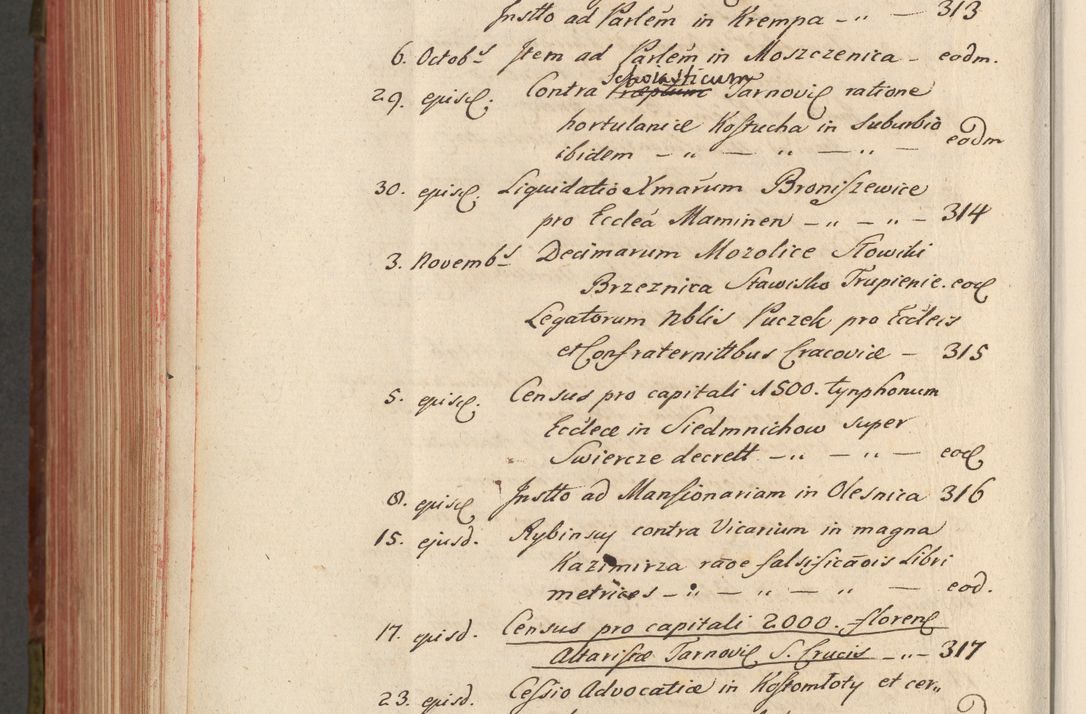 Jnstto ad Parlem in Krempa - " - 313
6. Octobs Jtem ad Parlem in Moszczenica - eodm.
Scholasticum
29. ejusd. Contra Tarnovie ratione
hortulaniæ Kostucha in suburbio
ibidem - " - " - " - eodm
30. ejusd. Liquidatio Xmarum Broniszewice
pro Eccleã Maminen - " - " - 314
3. Novembs Decimarum Mozolice Słowiki
Brzeznica Stawisko Trupienie. eod
Legatorum Nblis Puczek pro Eccleis
et Confraternittbus Cracoviæ - 315
5. ejusd. Census pro capitali 1500. tynphonum
Eccleæ in Siedmnichow super
Swiercze decrett - " - " - eod
8. ejusd Jnstto ad Mansionariam in Olesnica 316
15. ejusd. Rybinsky contra Vicarium in magna
Kazimirza raõe falsificãois Libri
metrices - " - " - " - eod.
17. ejusd. Census pro capitali 2000. floren
Altaristæ Tarnovie S. Crucis - " - 317
23. ejusd. Cessio Advocatiæ in Kostomłoty et cer"